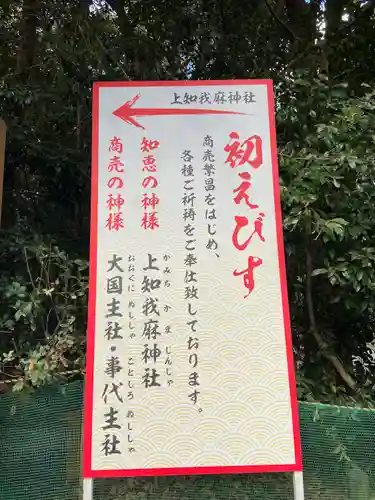 上知我麻神社
初えびす
商売繁昌をはじめ、
各種ご祈祷をご奉仕致しております。
知恵の神様
上知我麻神社
かみちかまじんじゃ
商売の神様
大国主社・事代主社
おおくにぬししゃ ことしろぬししゃ